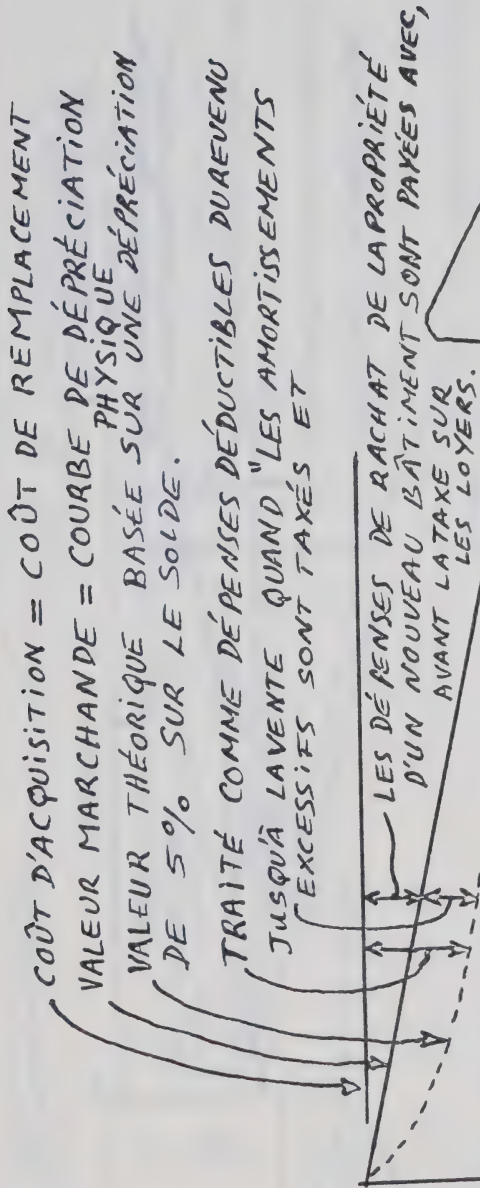 COÛT D'ACQUISITION = COÛT DE REMPLACEMENT
VALEUR MARCHANDE = COURBE DE DÉPRÉCIATION
PHYSIQUE
VALEUR THÉORIQUE BASÉE SUR UNE DÉPRÉCIATION
DE 5% SUR LE SOLDE.
TRAITÉ COMME DÉPENSES DÉDUCTIBLES DU REVENU
JUSQU'À LA VENTE QUAND "LES AMORTISSEMENTS
EXCESSIFS SONT TAXÉS ET
LES DÉPENSES DE RACHAT DE LA PROPRIÉTÉ
D'UN NOUVEAU BÂTIMENT SONT PAYÉES AVEC,
AVANT LA TAXE SUR
LES LOYERS.